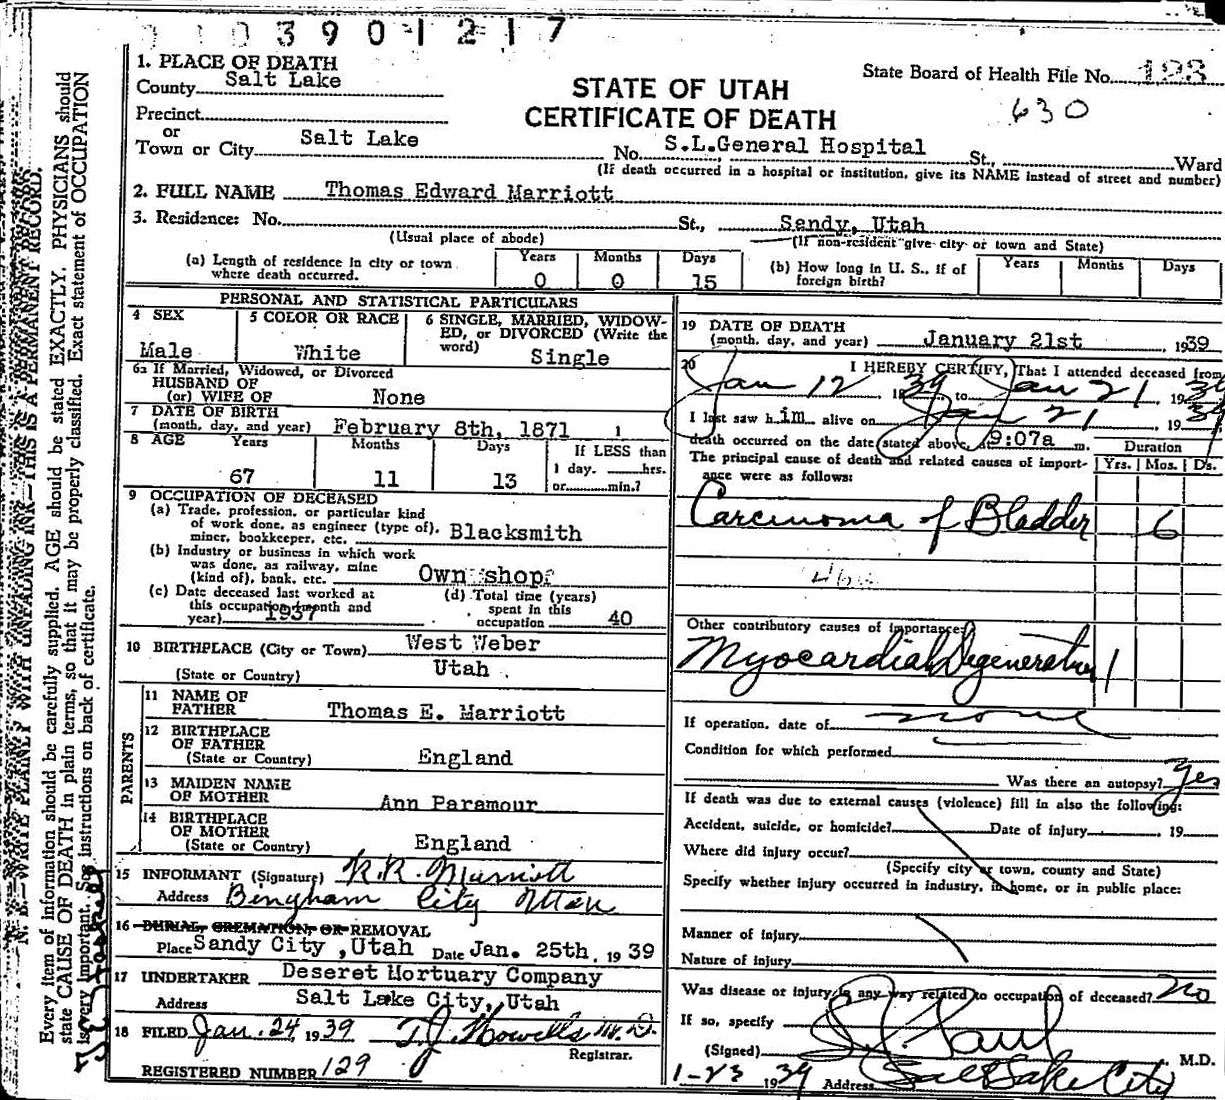 03901217
1. PLACE OF DEATH
County Salt Lake
State Board of Health File No. 123
STATE OF UTAH
CERTIFICATE OF DEATH
630
Precinct
or
Town or City Salt Lake No. S.L.General Hospital St., Ward
(If death occurred in a hospital or institution, give its NAME instead of street and number)
2. FULL NAME Thomas Edward Marriott
3. Residence: No. St., Sandy, Utah
(Usual place of abode) (If non-resident give city or town and State)
(a) Length of residence in city or town where death occurred. Years 0 Months 0 Days 15
(b) How long in U. S., if of foreign birth? Years Months Days
PERSONAL AND STATISTICAL PARTICULARS
4 SEX Male
5 COLOR OR RACE White
6 SINGLE, MARRIED, WIDOWED, or DIVORCED (Write the word) Single
6a If Married, Widowed, or Divorced
HUSBAND OF
(or) WIFE OF None
7 DATE OF BIRTH
(month, day, and year) February 8th, 1871
8 AGE Years 67 Months 11 Days 13
If LESS than
1 day, hrs.
or min.?
9 OCCUPATION OF DECEASED
(a) Trade, profession, or particular kind
of work done, as engineer (type of),
miner, bookkeeper, etc. Blacksmith
(b) Industry or business in which work
was done, as railway, mine
(kind of), bank, etc. Own shop
(c) Date deceased last worked at
this occupation (month and
year) 1937
(d) Total time (years)
spent in this
occupation 40
10 BIRTHPLACE (City or Town) West Weber
(State or Country) Utah
PARENTS
11 NAME OF
FATHER Thomas E. Marriott
12 BIRTHPLACE
OF FATHER
(State or Country) England
13 MAIDEN NAME
OF MOTHER Ann Paramour
14 BIRTHPLACE
OF MOTHER
(State or Country) England
15 INFORMANT (Signature) R.R. Marriott
Address Bingham City Utah
16 BURIAL, CREMATION, OR REMOVAL
Place Sandy City ,Utah Date Jan. 25th, 19 39
17 UNDERTAKER Deseret Mortuary Company
Address Salt Lake City, Utah
18 FILED Jan. 24, 1939 T.J. Howells M.D.
Registrar.
REGISTERED NUMBER 129
19 DATE OF DEATH
(month, day, and year) January 21st, 1939
20 I HEREBY CERTIFY, That I attended deceased from
Jan 12 1939 to Jan 21, 1939
I last saw him alive on Jan 21, 1939
death occurred on the date stated above, at 9:07a m.
Duration
Yrs. Mos. Ds.
The principal cause of death and related causes of importance were as follows:
Carcinoma of Bladder 6
Other contributory causes of importance:
Myocardial Degeneration 1
If operation, date of none
Condition for which performed
Was there an autopsy? Yes
If death was due to external causes (violence) fill in also the following:
Accident, suicide, or homicide? Date of injury , 19
Where did injury occur?
(Specify city or town, county and State)
Specify whether injury occurred in industry, in home, or in public place:
Manner of injury
Nature of injury
Was disease or injury in any way related to occupation of deceased? No
If so, specify
(Signed) M.D.
1-23 1939 Address Salt Lake City
N. B.—WRITE PLAINLY WITH UNFADING INK—THIS IS A PERMANENT RECORD.
Every item of information should be carefully supplied. AGE should be stated EXACTLY. PHYSICIANS should
state CAUSE OF DEATH in plain terms, so that it may be properly classified. Exact statement of OCCUPATION
is very important. See instructions on back of certificate.